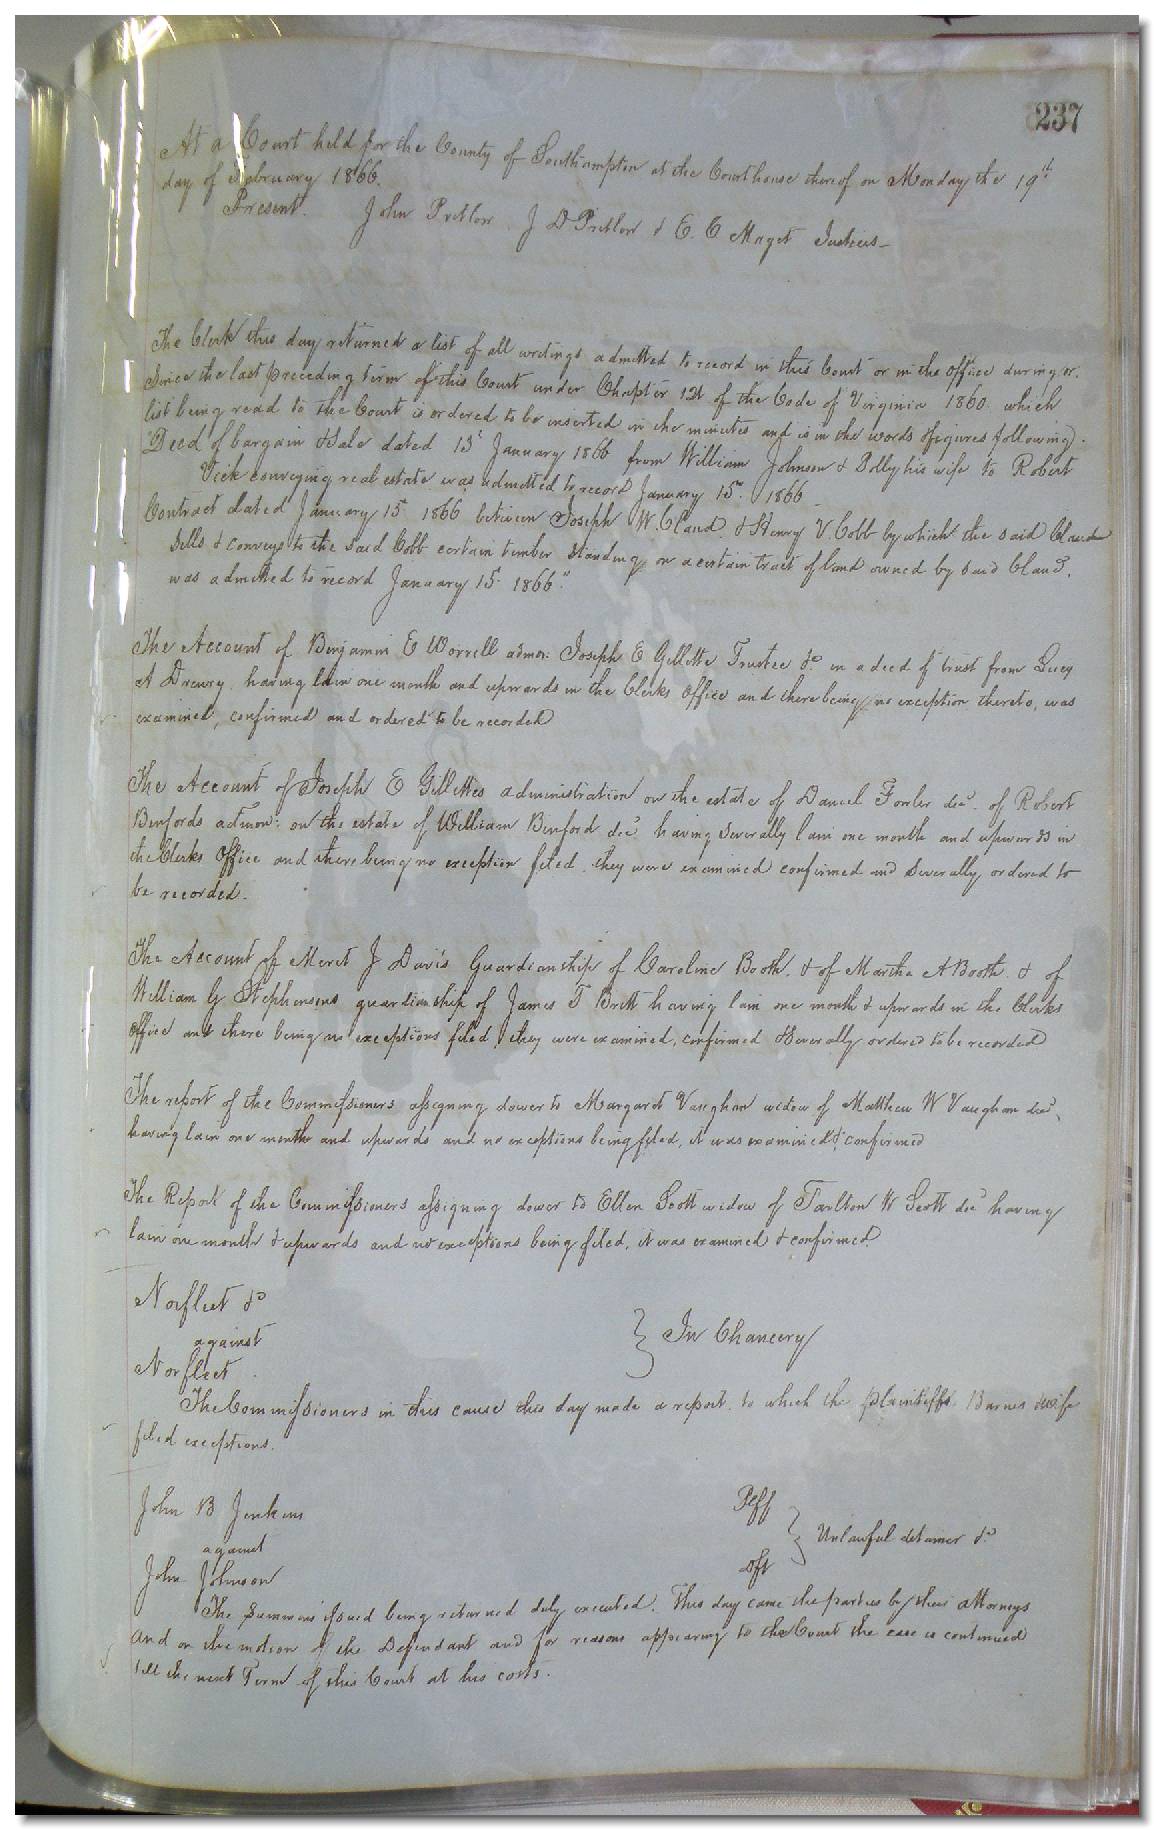 237
At a Court held for the County of Southampton at the Courthouse thereof on Monday the 19th
day of February 1866.
Present. John Pretlow, J D Pretlow & E. C Maget Justices
The Clerk this day returned a list of all writings admitted to record in this Court or in the office during or
since the last preceding term of this Court under Chapter 121 of the Code of Virginia 1860. which
list being read to the Court is ordered to be inserted in the minutes and is in the words & figures following.
"Deed of bargain & Sale dated 13th January 1866 from William Johnson & Polly his wife to Robert
Vick conveying real estate was admitted to record January 15th 1866
Contract dated January 15 1866 between Joseph W. Claud & Henry V. Cobb by which the said Claud
sells & conveys to the said Cobb certain timber standing on a certain tract of land owned by said Claud,
was admitted to record January 15 1866"
The Account of Benjamin E Worrell admor. Joseph E Gillette Trustee &c in a deed of trust from Lucy
A Drewry, having lain one month and upwards in the Clerks Office and there being no exception thereto, was
examined, confirmed and ordered to be recorded
The Account of Joseph E Gillettes administration on the estate of Daniel Fowler decd. of Robert
Binfords admon: on the estate of William Binford decd. having severally lain one month and upwards in
the Clerks Office and there being no exception filed, they were examined confirmed and severally ordered to
be recorded.
The Account of Meret J Davis Guardianship of Caroline Booth, & of Martha A Booth & of
William G Stephensons guardianship of James T Britt having lain one month & upwards in the Clerks
office and there being no exceptions filed, they were examined, confirmed & severally ordered to be recorded
The report of the Commissioners assigning dower to Margaret Vaughan widow of Matthew W Vaughan decd,
having lain one month and upwards and no exceptions being filed, it was examined & confirmed
The Report of the Commissioners assigning dower to Ellen Scott widow of Tarlton W Scott decd having
lain one month & upwards and no exceptions being filed, it was examined & confirmed
Norfleet &c
against
Norfleet
In Chancery
The Commissioners in this cause this day made a report, to which the plaintiffs Barnes & wife
filed exceptions.
John B Jenkins Plff
against
John Johnson Dft
Unlawful detainer &c
The summons issued being returned duly executed. This day came the parties by their attorneys
and on the motion of the Defendant and for reasons appearing to the Court the case is continued
till the next Term of this Court at his costs.